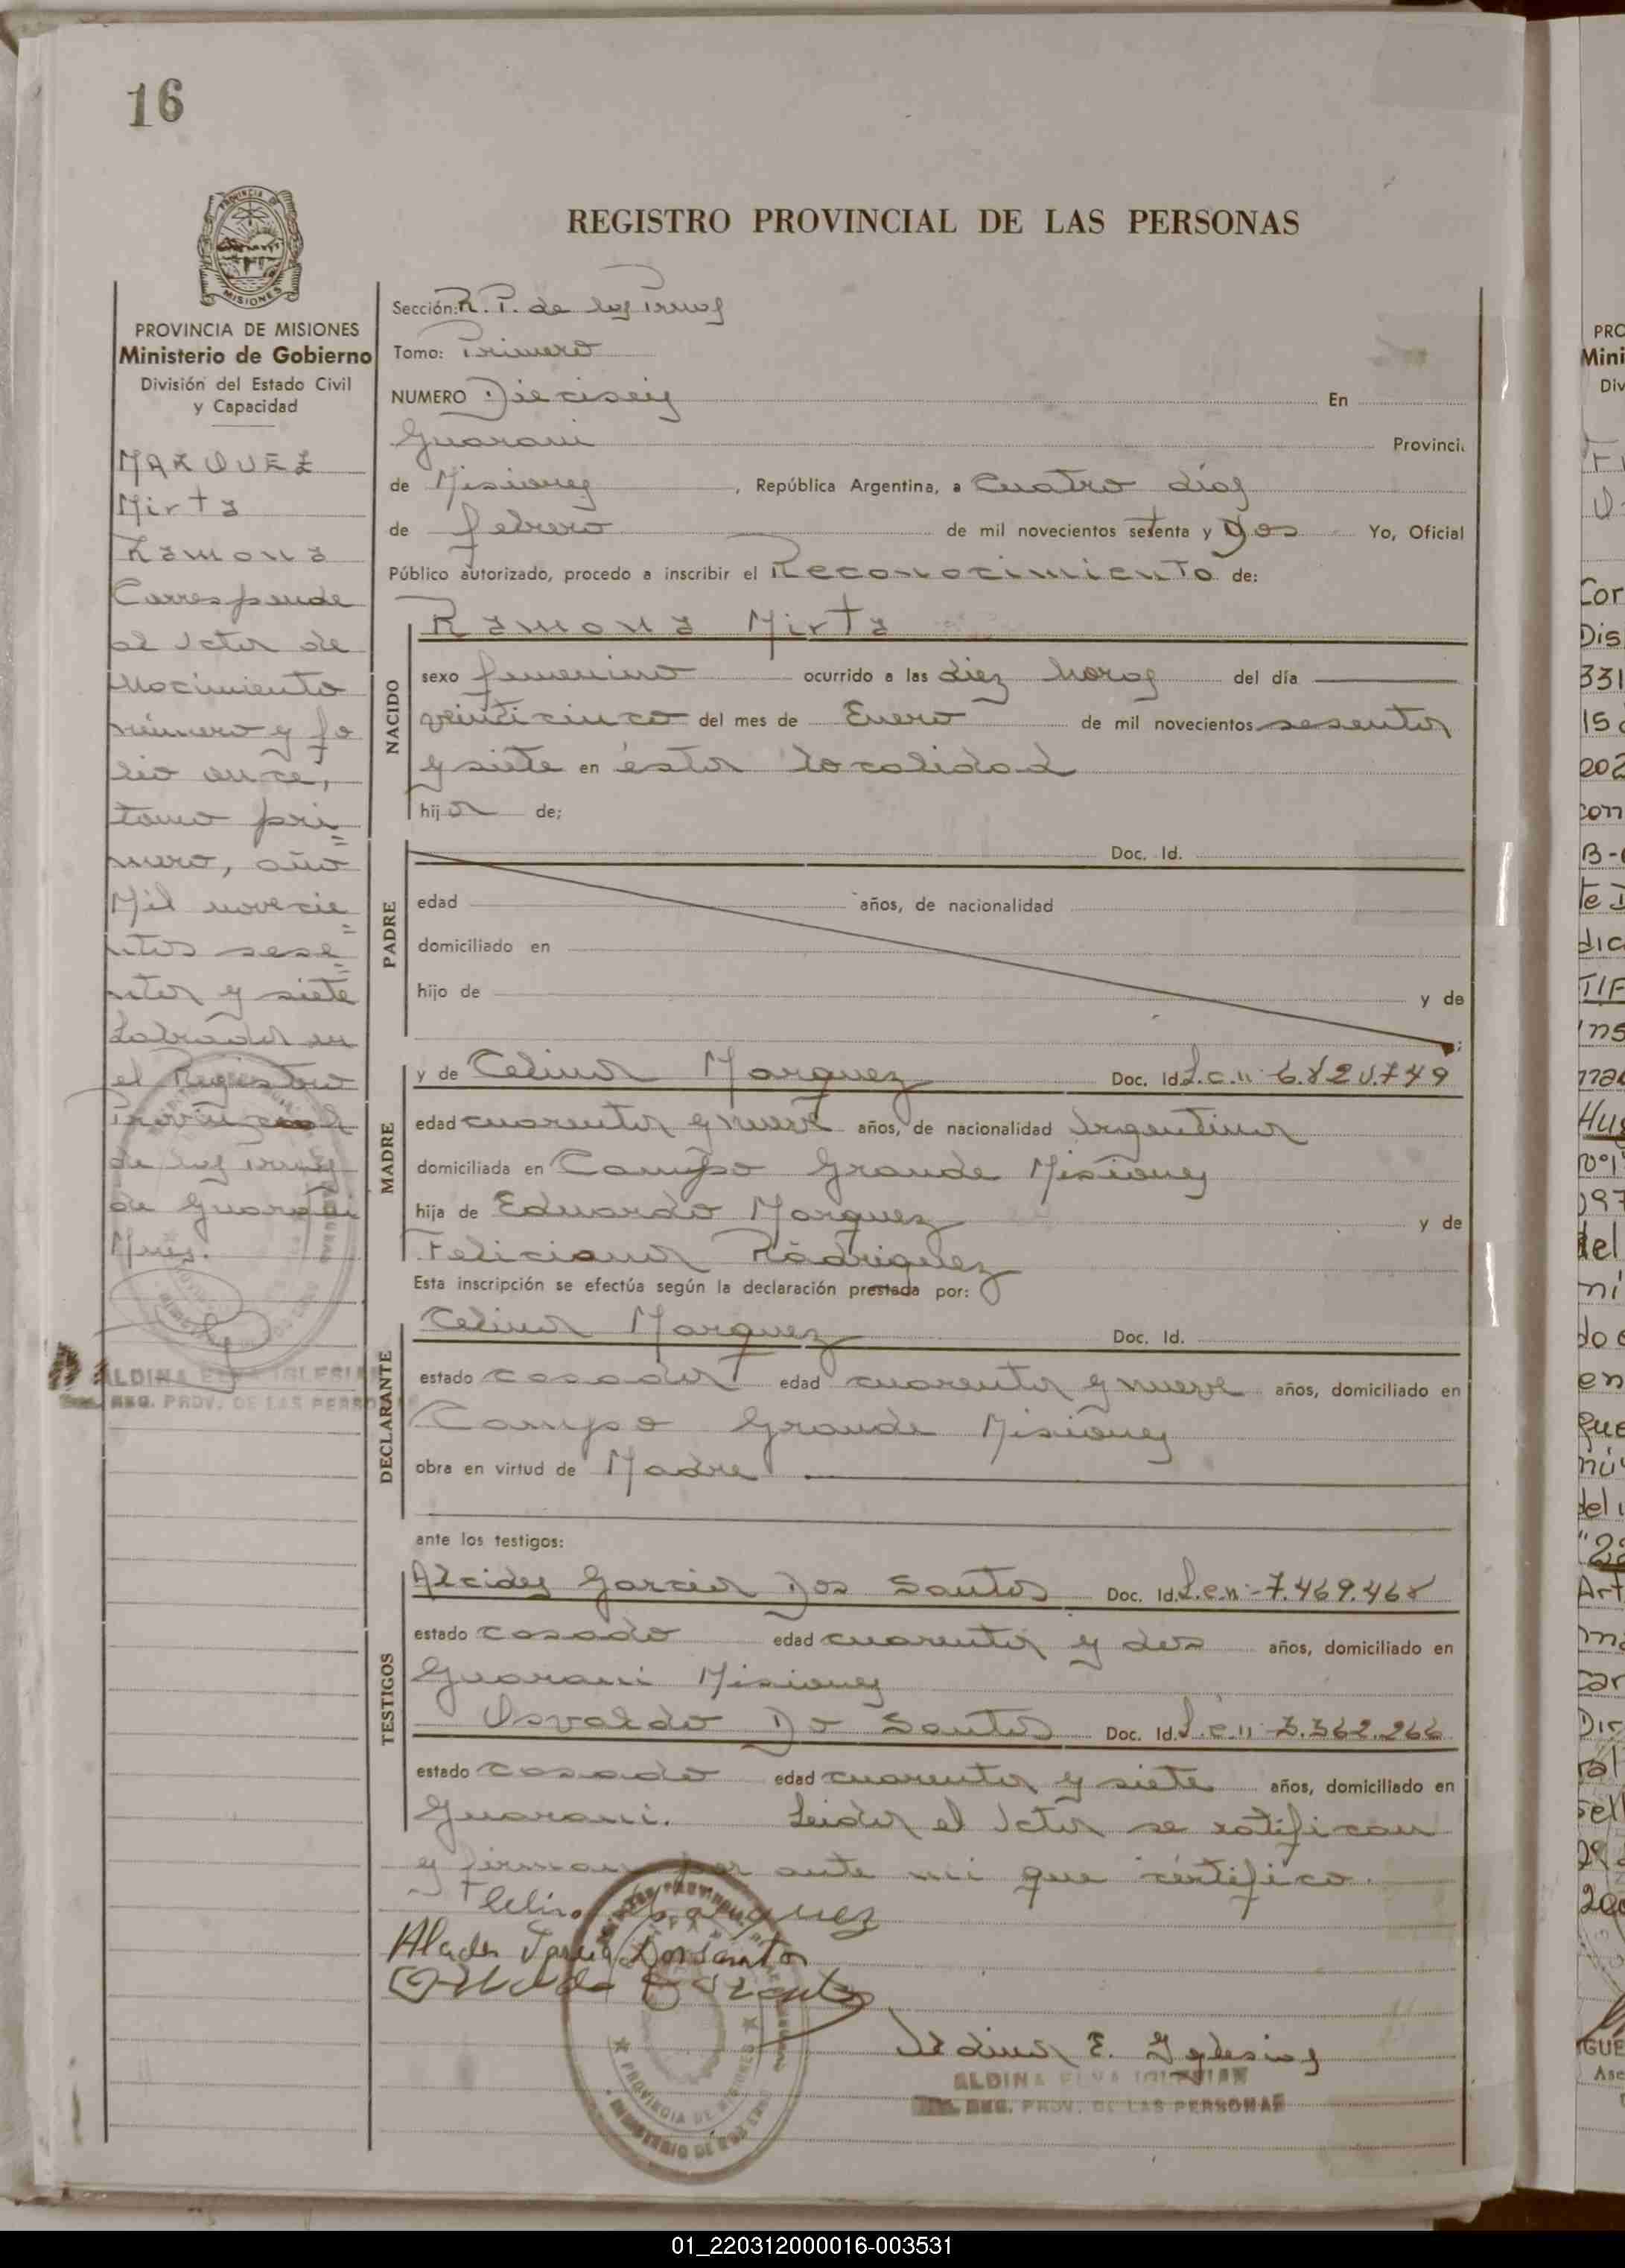 16
PROVINCIA DE MISIONES
Ministerio de Gobierno
División del Estado Civil
y Capacidad
MARQUEZ
Mirta
Ramona
Corresponde
al Acta de
Nacimiento
número y fo
lio once,
tomo pri=
mero, año
Mil novecie=
ntos sese=
nta y siete
Labrada en
el Registro
Provincial
de las Prnas
de Guarani
Mnes.
ALDINA ELVA IGLESIAS
REG. PROV. DE LAS PERSONAS
REGISTRO PROVINCIAL DE LAS PERSONAS
Sección: R. P. de las Prnas
Tomo: Primero
NUMERO Dieciseis En
Guarani Provinci
de Misiones, República Argentina, a cuatro días
de febrero de mil novecientos setenta y dos Yo, Oficial
Público autorizado, procedo a inscribir el Reconocimiento de:
NACIDO
Ramona Mirta
sexo femenino ocurrido a las diez horas del día
veinticinco del mes de Enero de mil novecientos sesenta
y siete en ésta localidad
hija de;
PADRE
Doc. Id.
edad años, de nacionalidad
domiciliado en
hijo de y de
;
MADRE
y de Celina Marquez Doc. Id. L.c.n 6.820.749
edad cuarenta y nueve años, de nacionalidad Argentina
domiciliada en Campo Grande Misiones
hija de Eduardo Marquez y de
Feliciana Rodriguez
Esta inscripción se efectúa según la declaración prestada por:
DECLARANTE
Celina Marquez Doc. Id.
estado casada edad cuarenta y nueve años, domiciliado en
Campo Grande Misiones
obra en virtud de Madre
ante los testigos:
TESTIGOS
Alcides Garcia Dos Santos Doc. Id. L.e.n 7.469.468
estado casado edad cuarenta y dos años, domiciliado en
Guarani Misiones
Osvaldo Do Santos Doc. Id. L.e.n 3.362.266
estado casado edad cuarenta y siete años, domiciliado en
Guarani. Leida el Acta se ratifican
y firman por ante mi que certifico.
Celina Marquez
Alcides Garcia Dos Santos
Osvaldo Do Santos
Aldina E. Iglesias
ALDINA ELVA IGLESIAS
REG. PROV. DE LAS PERSONAS
PROVINCIA DE MISIONES
MINISTERIO DE GOBIERNO
01_220312000016-003531